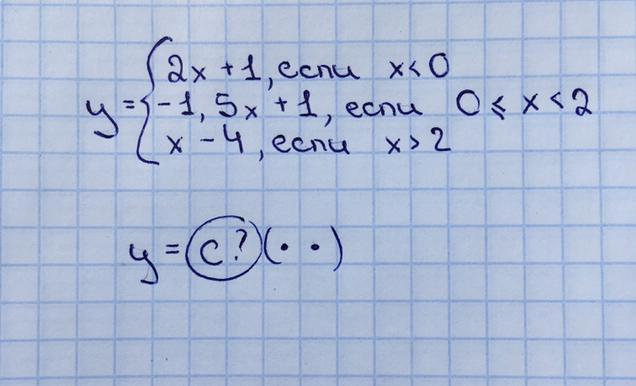 2x + 1, если x < 0
y = { -1,5x + 1, если 0 ⩽ x < 2
x - 4, если x > 2
y = c? (• •)